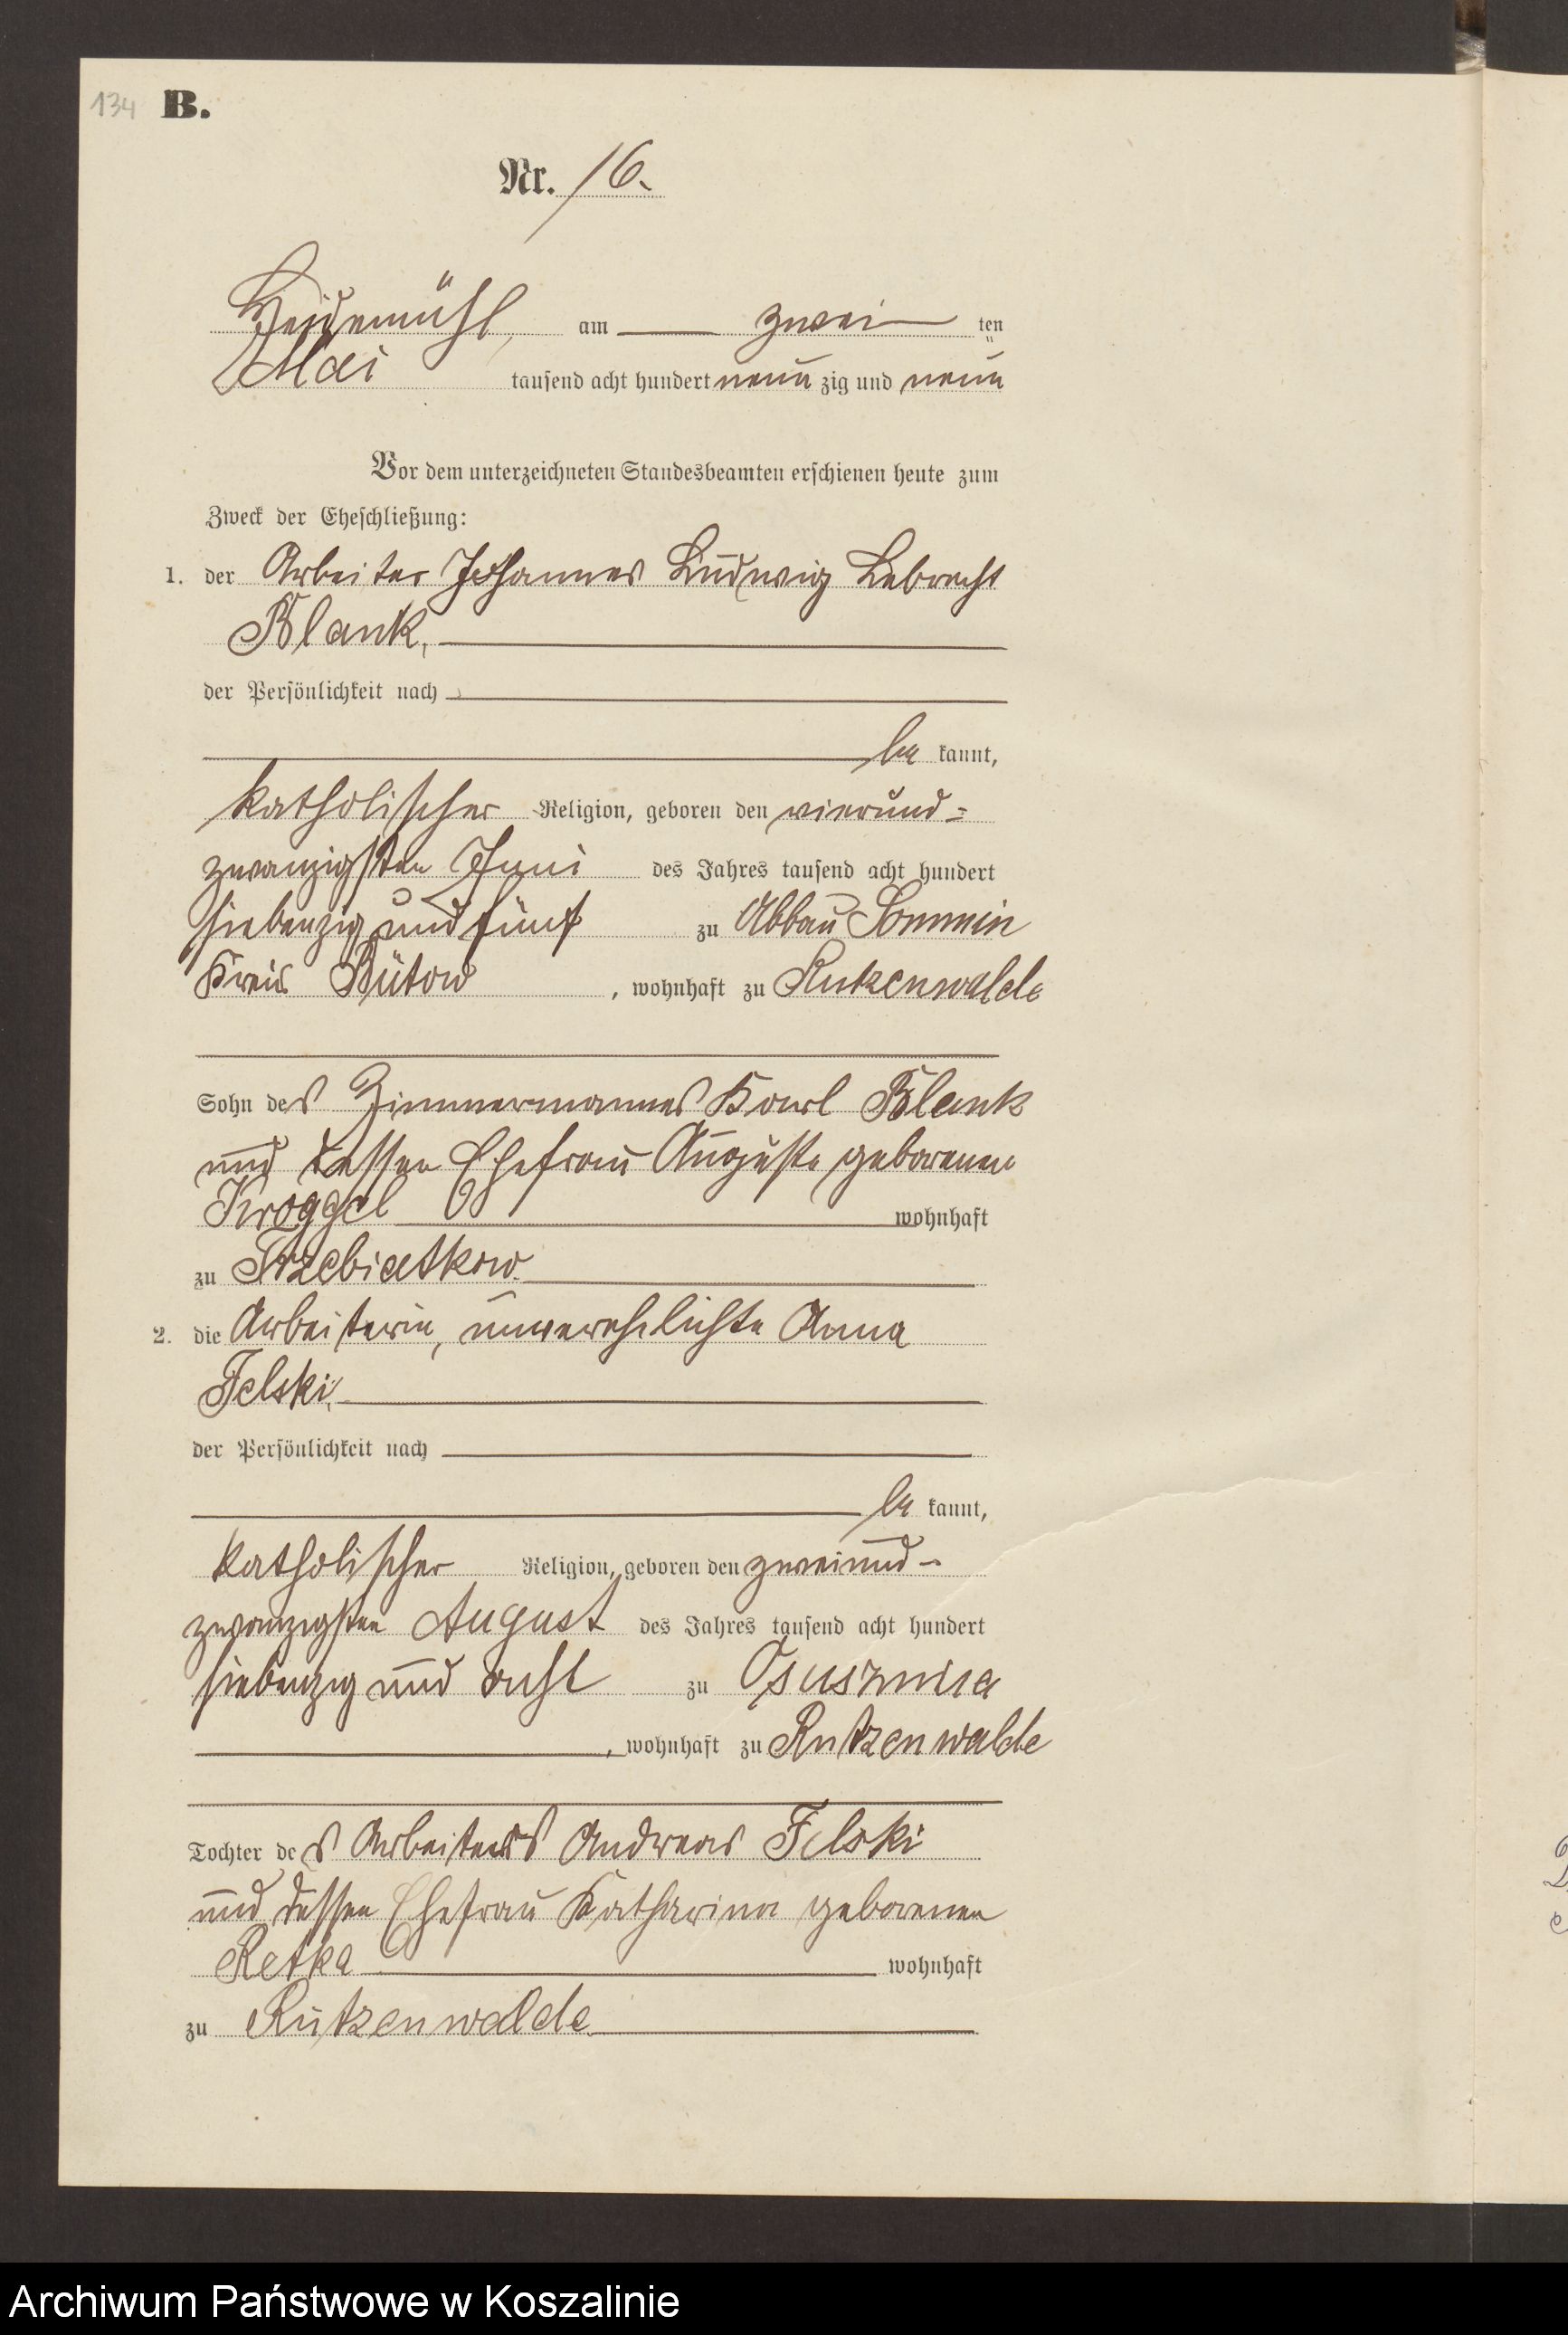 134 B.
Nr. 16.
Heidemühl, am zwei ten
Mai tausend acht hundert neun zig und neun
Vor dem unterzeichneten Standesbeamten erschienen heute zum
Zweck der Eheschließung:
1. der Arbeiter Johannes Ludwig Lebrecht
Blank,
der Persönlichkeit nach
be kannt,
katholischer Religion, geboren den vierund-
zwanzigsten Juni des Jahres tausend acht hundert
siebenzig und fünf zu Abbau Sommin
Kreis Bütow, wohnhaft zu Rutzenwalde
Sohn des Zimmermannes Karl Blank
und dessen Ehefrau Auguste geborenen
Kroggel wohnhaft
zu Trzebiatkow
2. die Arbeiterin, unverehelichte Anna
Felski,
der Persönlichkeit nach
be kannt,
katholischer Religion, geboren den zweiund-
zwanzigsten August des Jahres tausend acht hundert
siebenzig und acht zu
, wohnhaft zu Rutzenwalde
Tochter des Arbeiters Andreas Felski
und dessen Ehefrau Katharina geborenen
Retka wohnhaft
zu Rutzenwalde
Archiwum Państwowe w Koszalinie